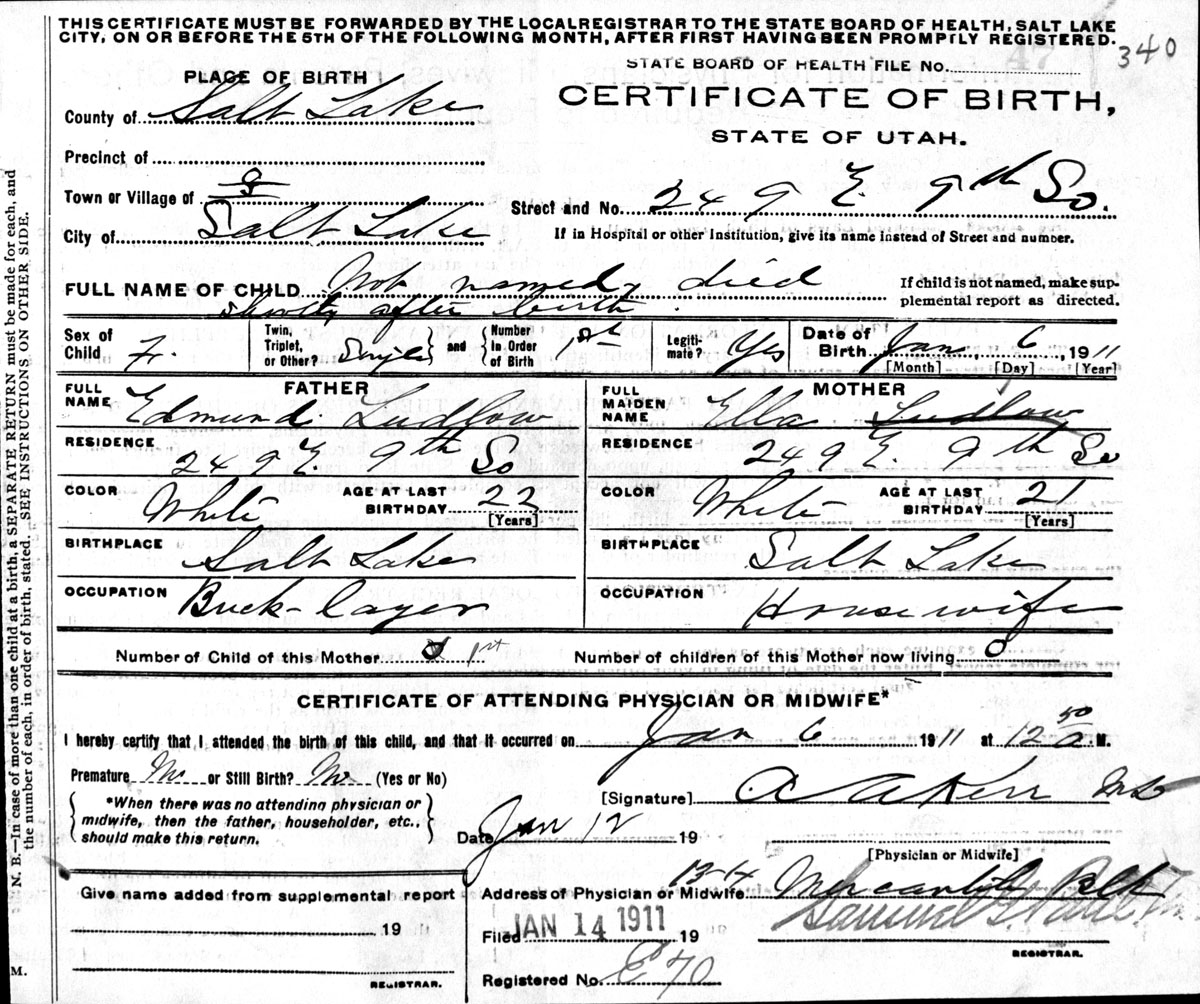 THIS CERTIFICATE MUST BE FORWARDED BY THE LOCAL REGISTRAR TO THE STATE BOARD OF HEALTH, SALT LAKE
CITY, ON OR BEFORE THE 5TH OF THE FOLLOWING MONTH, AFTER FIRST HAVING BEEN PROMPTLY REGISTERED.
340
STATE BOARD OF HEALTH FILE NO.
47
PLACE OF BIRTH
CERTIFICATE OF BIRTH,
STATE OF UTAH.
County of Salt Lake
Precinct of
Town or Village of
Street and No. 249 E. 9th So.
City of Salt Lake
If in Hospital or other Institution, give its name instead of Street and number.
FULL NAME OF CHILD Not named, died
shortly after birth.
If child is not named, make sup-
plemental report as directed.
Sex of Child F.
Twin, Triplet, or Other? Single and Number In Order of Birth 1st
Legiti-mate? Yes
Date of Birth Jan, 6, 1911
[Month] [Day] [Year]
FATHER
FULL NAME Edmund Ludlow
RESIDENCE 249 E. 9th So
COLOR White AGE AT LAST BIRTHDAY 22 [Years]
BIRTHPLACE Salt Lake
OCCUPATION Brick-layer
MOTHER
FULL MAIDEN NAME Ella Ludlow
RESIDENCE 249 E. 9th So
COLOR White AGE AT LAST BIRTHDAY 21 [Years]
BIRTHPLACE Salt Lake
OCCUPATION Housewife
Number of Child of this Mother 1st
Number of children of this Mother now living 0
CERTIFICATE OF ATTENDING PHYSICIAN OR MIDWIFE*
I hereby certify that I attended the birth of this child, and that it occurred on Jan 6 1911 at 12 50 a. M.
Premature No or Still Birth? No (Yes or No)
*When there was no attending physician or
midwife, then the father, householder, etc.,
should make this return.
[Signature] A A Kerr MD
Date Jan 12 19
[Physician or Midwife]
Give name added from supplemental report
19
REGISTRAR.
Address of Physician or Midwife 13-14 Mercantile Blk
Filed JAN 14 1911 19
Samuel G. Paul
REGISTRAR.
Registered No. 70
N. B.—In case of more than one child at a birth a SEPARATE RETURN must be made for each, and
the number of each, in order of birth, stated. SEE INSTRUCTIONS ON OTHER SIDE.
M.